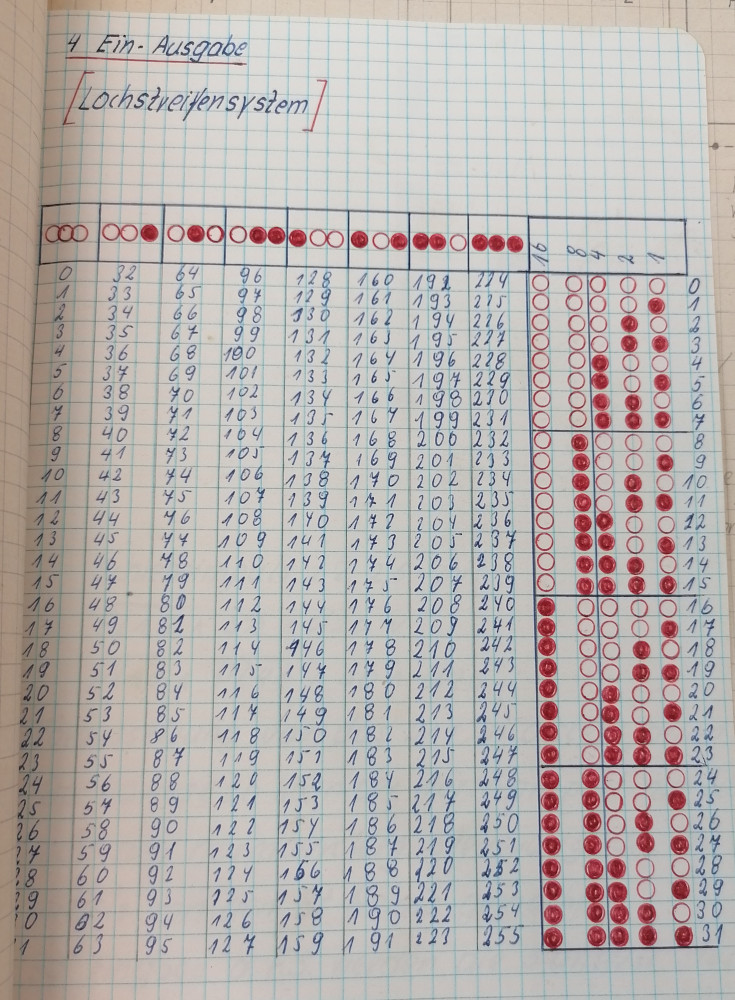 4 Ein-Ausgabe
[Lochstreifensystem]
16 8 4 2 1
0 32 64 96 128 160 192 224 0
1 33 65 97 129 161 193 225 1
2 34 66 98 130 162 194 226 2
3 35 67 99 131 163 195 227 3
4 36 68 100 132 164 196 228 4
5 37 69 101 133 165 197 229 5
6 38 70 102 134 166 198 230 6
7 39 71 103 135 167 199 231 7
8 40 72 104 136 168 200 232 8
9 41 73 105 137 169 201 233 9
10 42 74 106 138 170 202 234 10
11 43 75 107 139 171 203 235 11
12 44 76 108 140 172 204 236 12
13 45 77 109 141 173 205 237 13
14 46 78 110 142 174 206 238 14
15 47 79 111 143 175 207 239 15
16 48 80 112 144 176 208 240 16
17 49 81 113 145 177 209 241 17
18 50 82 114 146 178 210 242 18
19 51 83 115 147 179 211 243 19
20 52 84 116 148 180 212 244 20
21 53 85 117 149 181 213 245 21
22 54 86 118 150 182 214 246 22
23 55 87 119 151 183 215 247 23
24 56 88 120 152 184 216 248 24
25 57 89 121 153 185 217 249 25
26 58 90 122 154 186 218 250 26
27 59 91 123 155 187 219 251 27
8 60 92 124 166 188 220 252 28
9 61 93 125 157 189 221 253 29
0 62 94 126 158 190 222 254 30
1 63 95 127 159 191 223 255 31